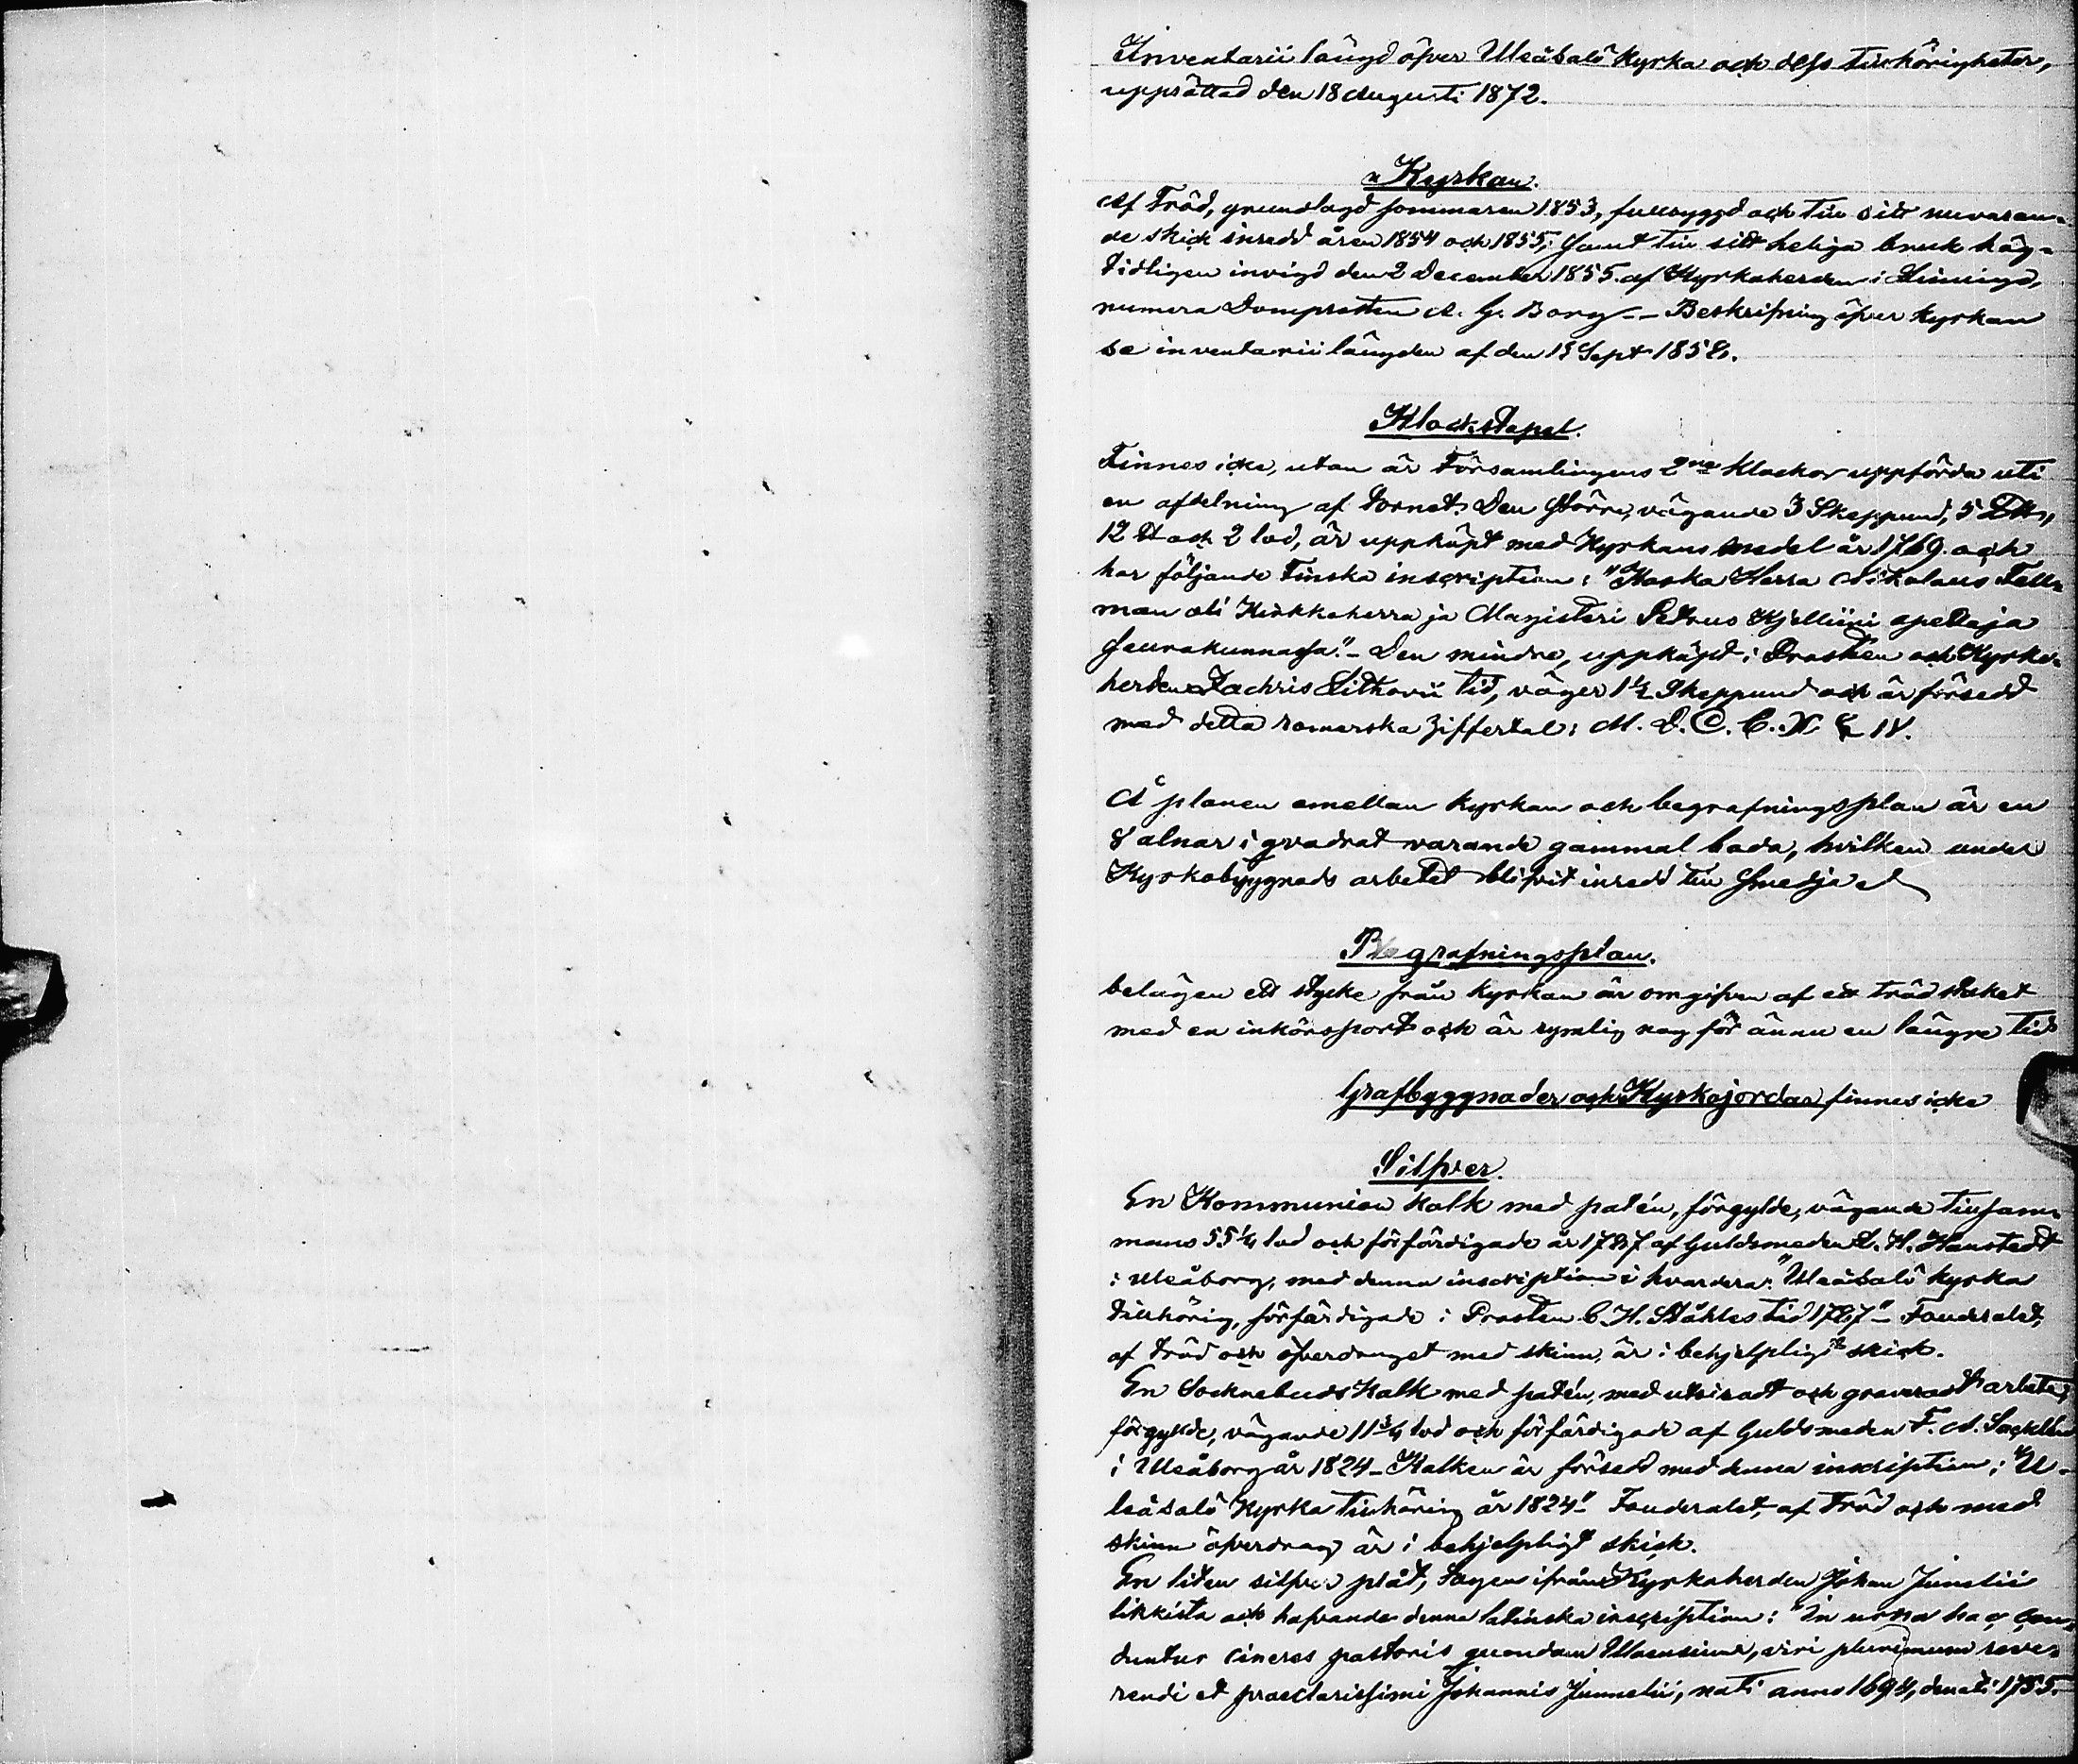 Inventarii längd öfver Uleåsalö Kyrka och dess tillhörigheter,
upprättad den 18 Augusti 1872.
Kyrkan.
Af Träd, grundlagd sommaren 1853, fullbyggd och till sitt nuvaran-
de skick inredd åren 1854 och 1855, samt till sitt heliga bruk hög-
tidligen invigd den 2 December 1855 af Kyrkoherden i Limingo,
numera Domprosten A. G. Borg -- Beskrifning öfver Kyrkan
se inventarii längden af den 15 Sept 1858.
Klockstapel.
Finnes icke, utan är Församlingens 2ne Klockor uppförda uti
en afdelning af tornet. Den större, vägande 3 Skeppund, 5 L℔,
12 ℔ och 2 lod, är uppköpt med Kyrkans medel år 1769 och
har följande Finska inscription: "Koska Herra Nikolaus Fell-
man oli Kirkkoherra ja Magisteri Petrus Kjelliini opettaja
seurakunnassa." - Den mindre, uppköpt i Prosten och Kyrko-
herden Zachris Lithovii tid, väger 1 1/2 Skeppund och är försedd
med detta romerska ziffertal: M. D. C. C. X. & IV.
Å planen emellan kyrkan och begrafningsplan är en
8 alnar i qvadrat varande gammal boda, hvilken under
Kyrkobyggnads arbetet blifvit inredd till smedja
Begrafningsplan.
belägen ett stycke från kyrkan är omgifven af ett träd staket
med en inkörsport och är rymlig nog för ännu en längre tid
Grafbyggnader och Kyrkojordar finnes icke
Silfver.
En Kommunion Kalk med patén, förgylde, vägande tillsam-
mans 55 1/4 lod och förfärdigade år 1787 af Guldsmeden L. H. Hanstedt
i Uleåborg, med denna inscription i hvardera: "Uleåsalö kyrka
tillhörig, förfärdigade i Prosten C. H. Ståhles tid 1787" - Fouderalet,
af träd och öfverdraget med skinn, är i behjelpligt skick.
En Sockenbuds Kalk med patén, med utsiradt och graveradt arbete,
förgylde, vägande 11 3/4 lod och förfärdigade af Guldsmeden F. A.
i Uleåborg år 1824 - Kalken är försedd med denna inscription: "U-
leåsalö Kyrka tillhörig år 1824" Fouderalet, af Träd och med
skinn öfverdrag är i behjelpligt skick.
En liten silfver plåt, tagen ifrån Kyrkoherden Johan Junelii
likkista och hafvande denna latinska inscription: "In urna hac con-
duntur cineres pastoris quondam Uloensium, viri plurimum reve-
rendi et praeclarissimi Johannis Junnelii, nati anno 1694, denati 1755.